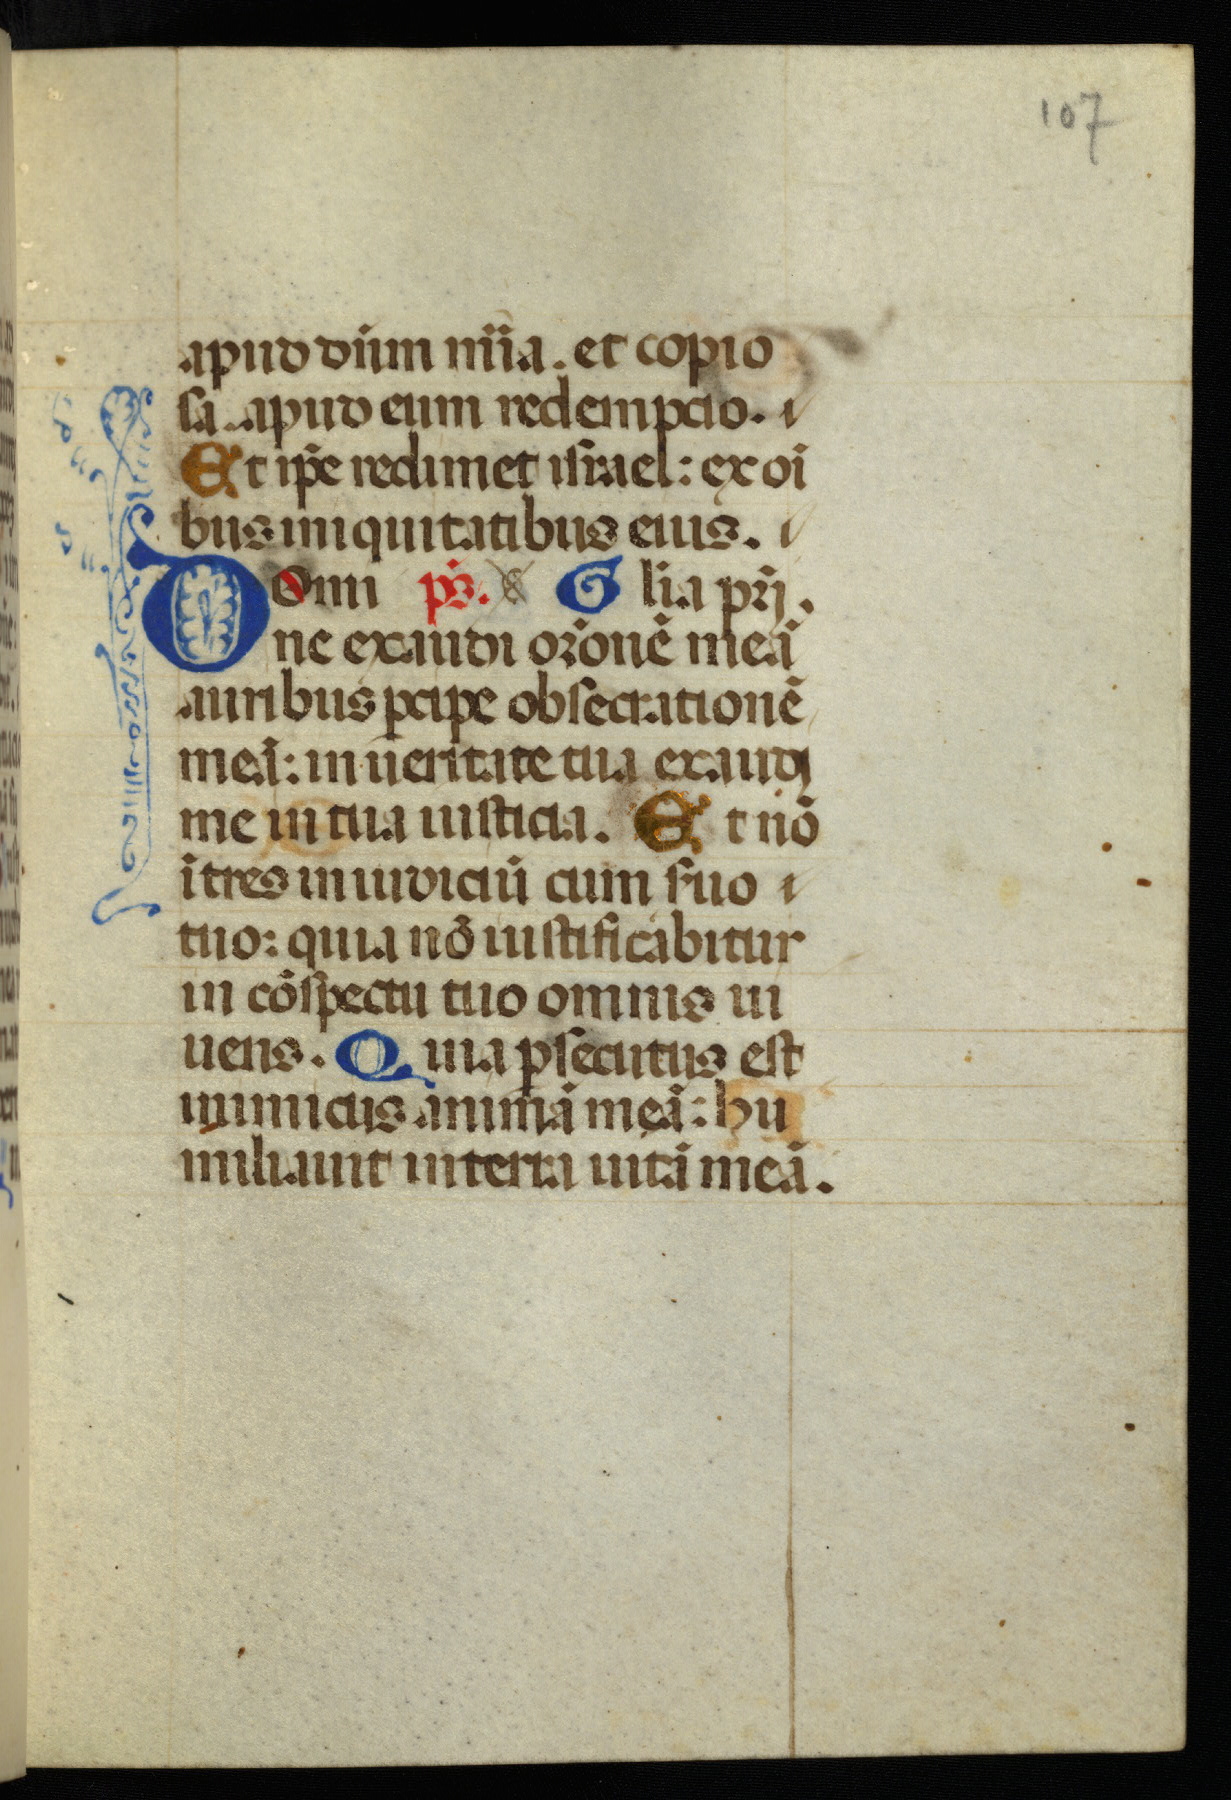 107
apud dñm miīa. et copio
sa apud eum redempcio.
Et ip̄e redimet israel: ex oī
bus iniquitatibus eius.
Domi ps. Glia pr̄i.
ne exaudi or̄onē meā
auribus pcipe obsecrationē
meā: in ueritate tua exaudi
me in tua iusticia. Et nō
ītres in iudiciū cum suo
tuo: quia nō iustificabitur
in cōspectu tuo omnis ui
uens. Quia psecutus est
inimicus animā meā: hu
miliauit in terra uitā meā.